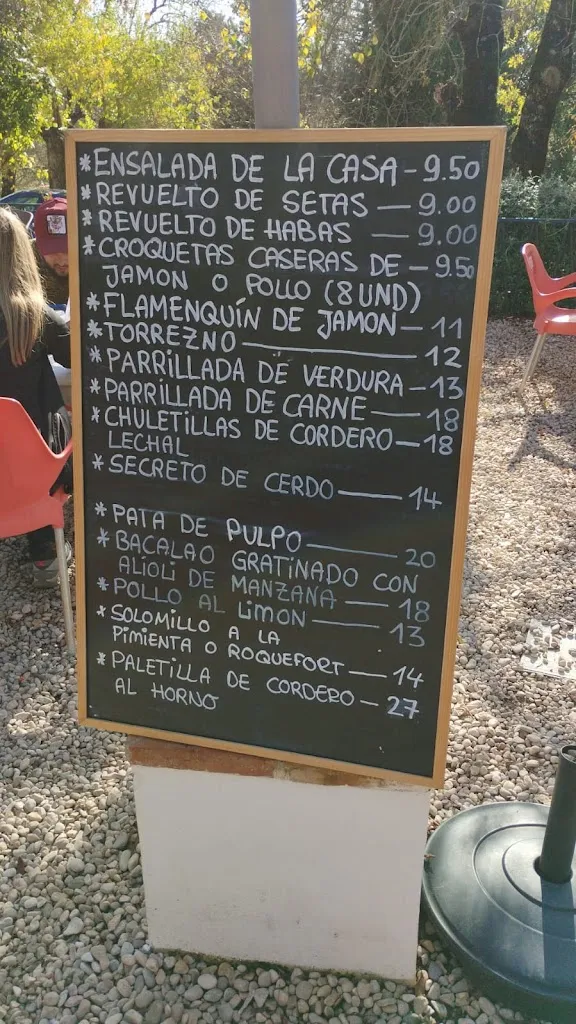 *ENSALADA DE LA CASA - 9.50
*REVUELTO DE SETAS — 9.00
*REVUELTO DE HABAS — 9.00
*CROQUETAS CASERAS DE - 9.50
JAMON O POLLO (8 UND)
*FLAMENQUÍN DE JAMON — 11
*TORREZNO — 12
*PARRILLADA DE VERDURA - 13
*PARRILLADA DE CARNE — 18
*CHULETILLAS DE CORDERO — 18
LECHAL
*SECRETO DE CERDO — 14
*PATA DE PULPO — 20
*BACALAO GRATINADO CON
ALIOLI DE MANZANA — 18
*POLLO AL LIMON — 13
*SOLOMILLO A LA
PIMIENTA O ROQUEFORT — 14
*PALETILLA DE CORDERO — 27
AL HORNO